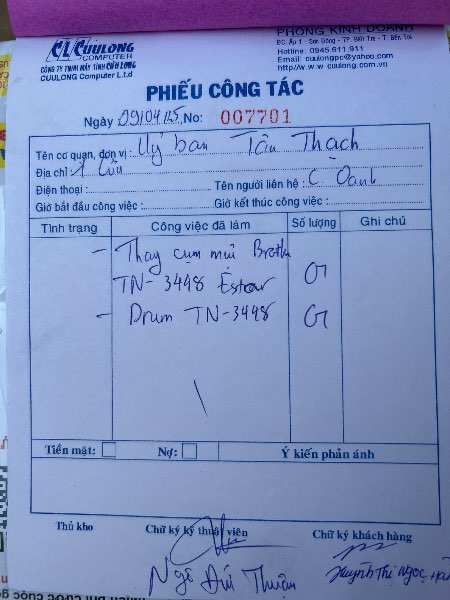 CL CUULONG
COMPUTER
CÔNG TY TNHH MÁY TÍNH CỬU LONG
CUULONG Computer L.t.d
PHÒNG KINH DOANH
ĐC: Ấp 1 - Sơn Đông - TP. Bến Tre - T. Bến Tre
Hotline: 0945.611.911
Email: cuulongpc@yahoo.com
http//w.w.w cuulong.com.vn
PHIẾU CÔNG TÁC
Ngày 09/04/25, No: 007701
Tên cơ quan, đơn vị: Uỷ ban Tân Thạch
Địa chỉ:
Điện thoại: Tên người liên hệ: C Oanh
Giờ bắt đầu công việc: Giờ kết thúc công việc:
Tình trạng Công việc đã làm Số lượng Ghi chú
- Thay cụm mực Broth
TN-3498 Estar 01
- Drum TN-3498 01
Tiền mặt: Nợ: Ý kiến phản ánh
Thủ kho Chữ ký kỹ thuật viên Chữ ký khách hàng
Ngô Đức Thuận Huỳnh Thị Ngọc Hân